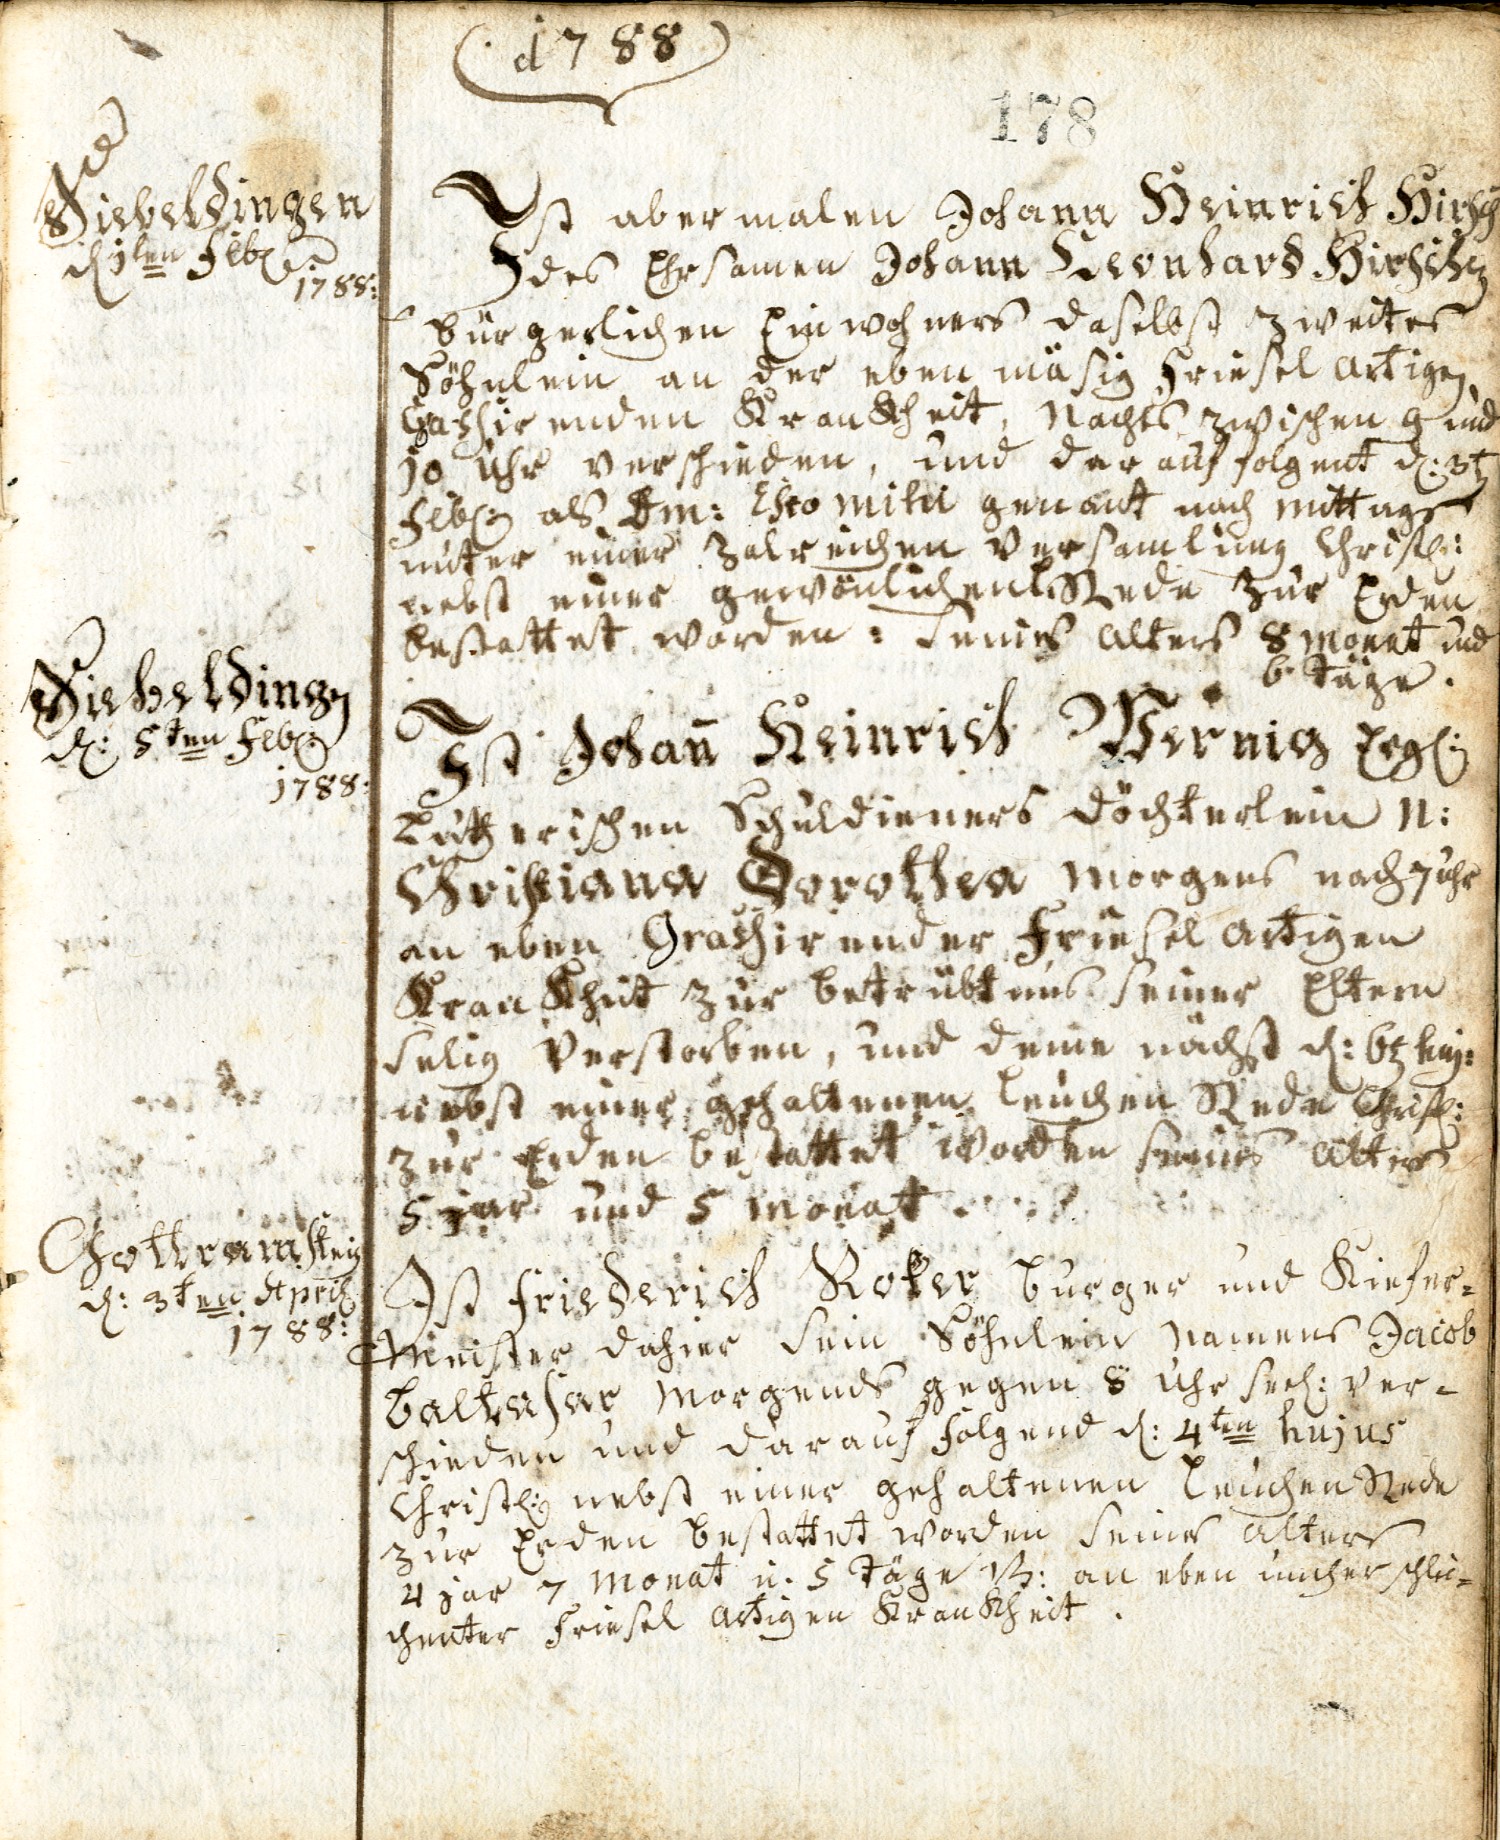 1788
178
Siebeldingen
d: 1ten Feb:
1788:
Ist abermalen Johann Heinrich Hirsch
des Ehrsamen Johann Leonhard Hirschen
bürgerlichen Einwohners daselbst zweites
Söhnlein an der eben mäsig Friesel artigen
Grathirenden Kranckheit, Nachts zwischen 9 und
10 Uhr verschieden, und darauf folgent d: 3t
Feb: als Dm: Esto mihi genant nach mittags
unter einer zalreichen versamlung Christl:
nebst einer gewönlichen L. Rede zur Erden
bestattet worden: seines Alters 8 monat und
6 täge.
Siebeldingen
d: 5ten Feb:
1788:
Ist Johan̄ Heinrich Wernig Evgl:
Lutherischen Schuldieners döchterlein N:
Christiana Dorothea morgens nach 7 uhr
an eben Grathirender Friesel artigen
Kranckheit zur betrübtnus seiner Eltern
selig verstorben, und deme nächst d: 6t huj:
nebst einer gehaltenen Leuchen Rede Christl:
zur Erden bestattet worden seines alters
5 jar und 5 monat.
Gothramstein
d: 3ten April
1788:
Ist Friederich Roker burger und Kiefer-
Meister dahier sein Söhnlein Namens Jacob
Baltasar morgends gegen 8 Uhr seel: ver-
schieden und darauf folgend d: 4ten hujus
Christl: nebst einer gehaltenen Leuchen Rede
zur Erden bestattet worden seines alters
4 jar 7 Monat u. 5 Täge an eben umherschlei-
chenter Friesel artigen Kranckheit.